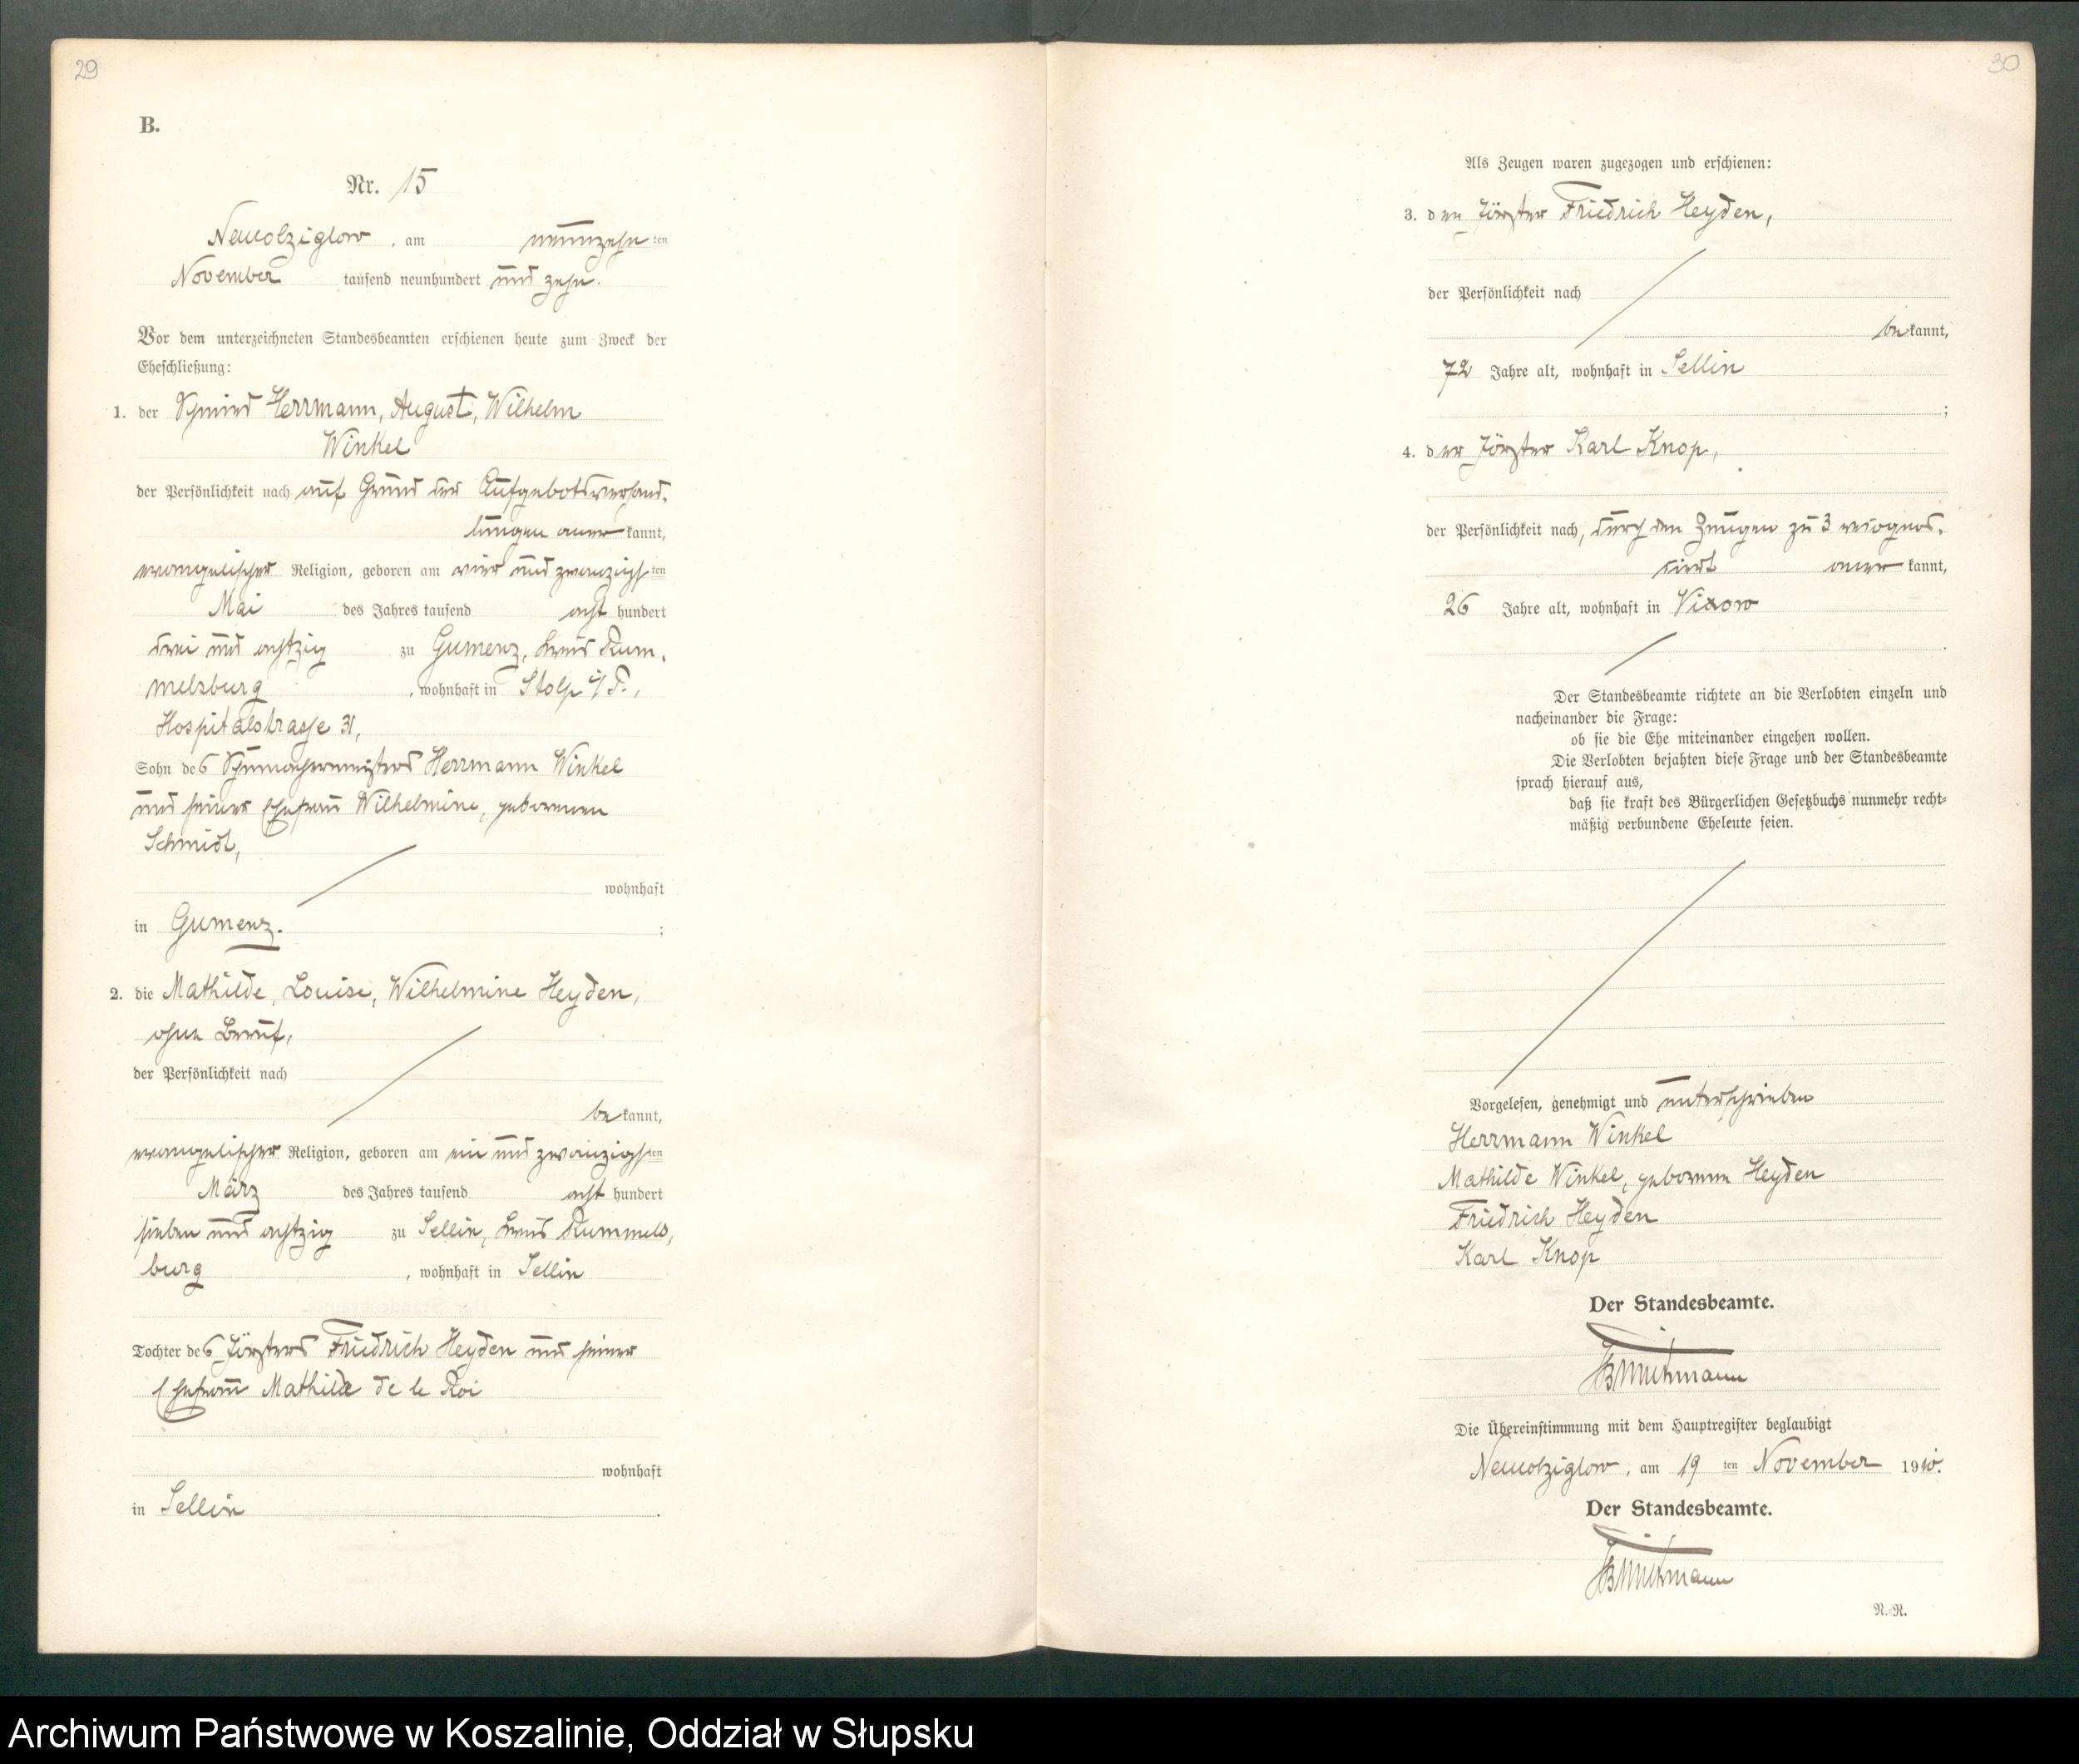 29
B.
Nr. 15
Neukolziglow, am neunzehnten
November tausend neunhundert und zehn.
Vor dem unterzeichneten Standesbeamten erschienen heute zum Zweck der
Eheschließung:
1. der Schmied Herrmann, August, Wilhelm
Winkel
der Persönlichkeit nach auf Grund der Aufgebotsverhand-
lungen anerkannt,
evangelischer Religion, geboren am vier und zwanzigsten
Mai des Jahres tausend acht hundert
drei und achtzig zu Gumenz, Kreis Rum-
melsburg, wohnhaft in Stolp i/P.,
Hospitalstrasse 31,
Sohn des Schumachermeisters Herrmann Winkel
und seiner Ehefrau Wilhelmine, geborenen
Schmidt,
wohnhaft
in Gumenz. ;
2. die Mathilde, Louise, Wilhelmine Heyden,
ohne Beruf,
der Persönlichkeit nach
bekannt,
evangelischer Religion, geboren am ein und zwanzigsten
März des Jahres tausend acht hundert
sieben und achtzig zu Sellin, Kreis Rummels-
burg, wohnhaft in Sellin
Tochter des Försters Friedrich Heyden und seiner
Ehefrau Mathilde de le Roi
wohnhaft
in Sellin.
30
Als Zeugen waren zugezogen und erschienen:
3. der Förster Friedrich Heyden,
der Persönlichkeit nach
bekannt,
72 Jahre alt, wohnhaft in Sellin
;
4. der Förster Karl Knop,
der Persönlichkeit nach, durch den Zeugen zu 3 recognos-
ciert anerkannt,
26 Jahre alt, wohnhaft in Vixow
.
Der Standesbeamte richtete an die Verlobten einzeln und
nacheinander die Frage:
ob sie die Ehe miteinander eingehen wollen.
Die Verlobten bejahten diese Frage und der Standesbeamte
sprach hierauf aus,
daß sie kraft des Bürgerlichen Gesetzbuchs nunmehr recht-
mäßig verbundene Eheleute seien.
Vorgelesen, genehmigt und unterschrieben
Herrmann Winkel
Mathilde Winkel, geborene Heyden
Friedrich Heyden
Karl Knop
Der Standesbeamte.
Die Übereinstimmung mit dem Hauptregister beglaubigt
Neukolziglow, am 19ten November 1910.
Der Standesbeamte.
N.-R.
Archiwum Państwowe w Koszalinie, Oddział w Słupsku